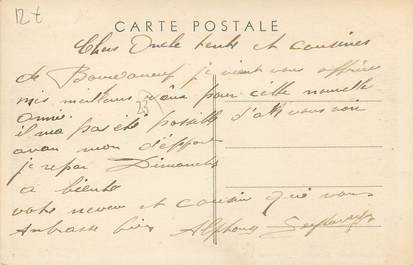 12 t
CARTE POSTALE
Chers Oncle tante et cousines
de je vient vous offrire
mes meilleurs vœux pour cette nouvelle
année.
23
il ma pas été possible d'allé vous voir
avan mon départ
je repar Dimanche
a biento
votre neveu et cousin qui vous
Anbrasse bien Alphonse